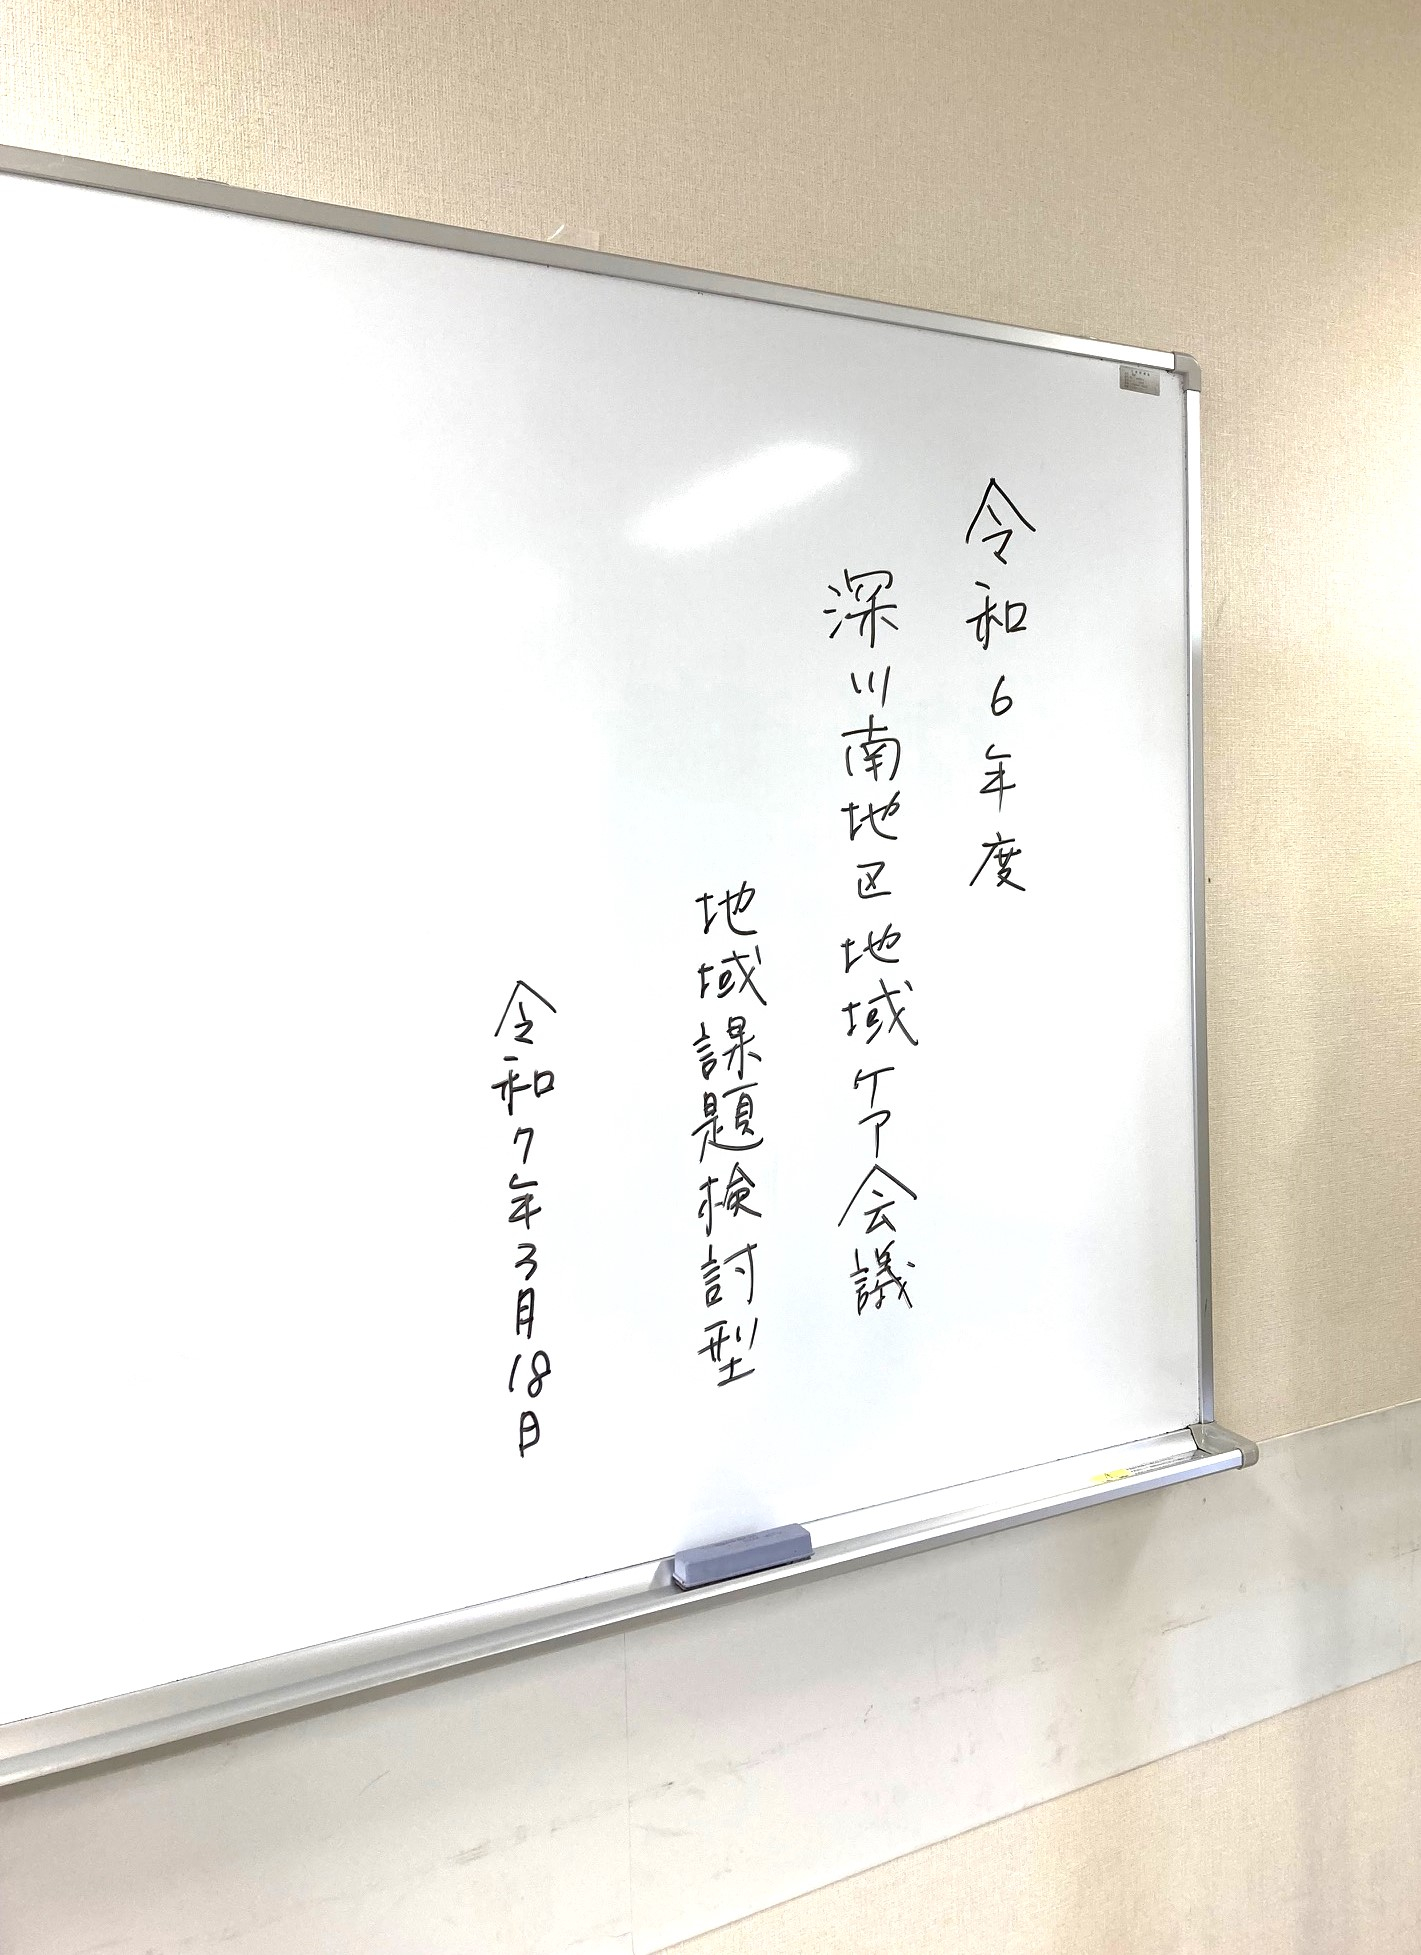 令和6年度
深川南地区地域ケア会議
地域課題検討型
令和7年3月18日